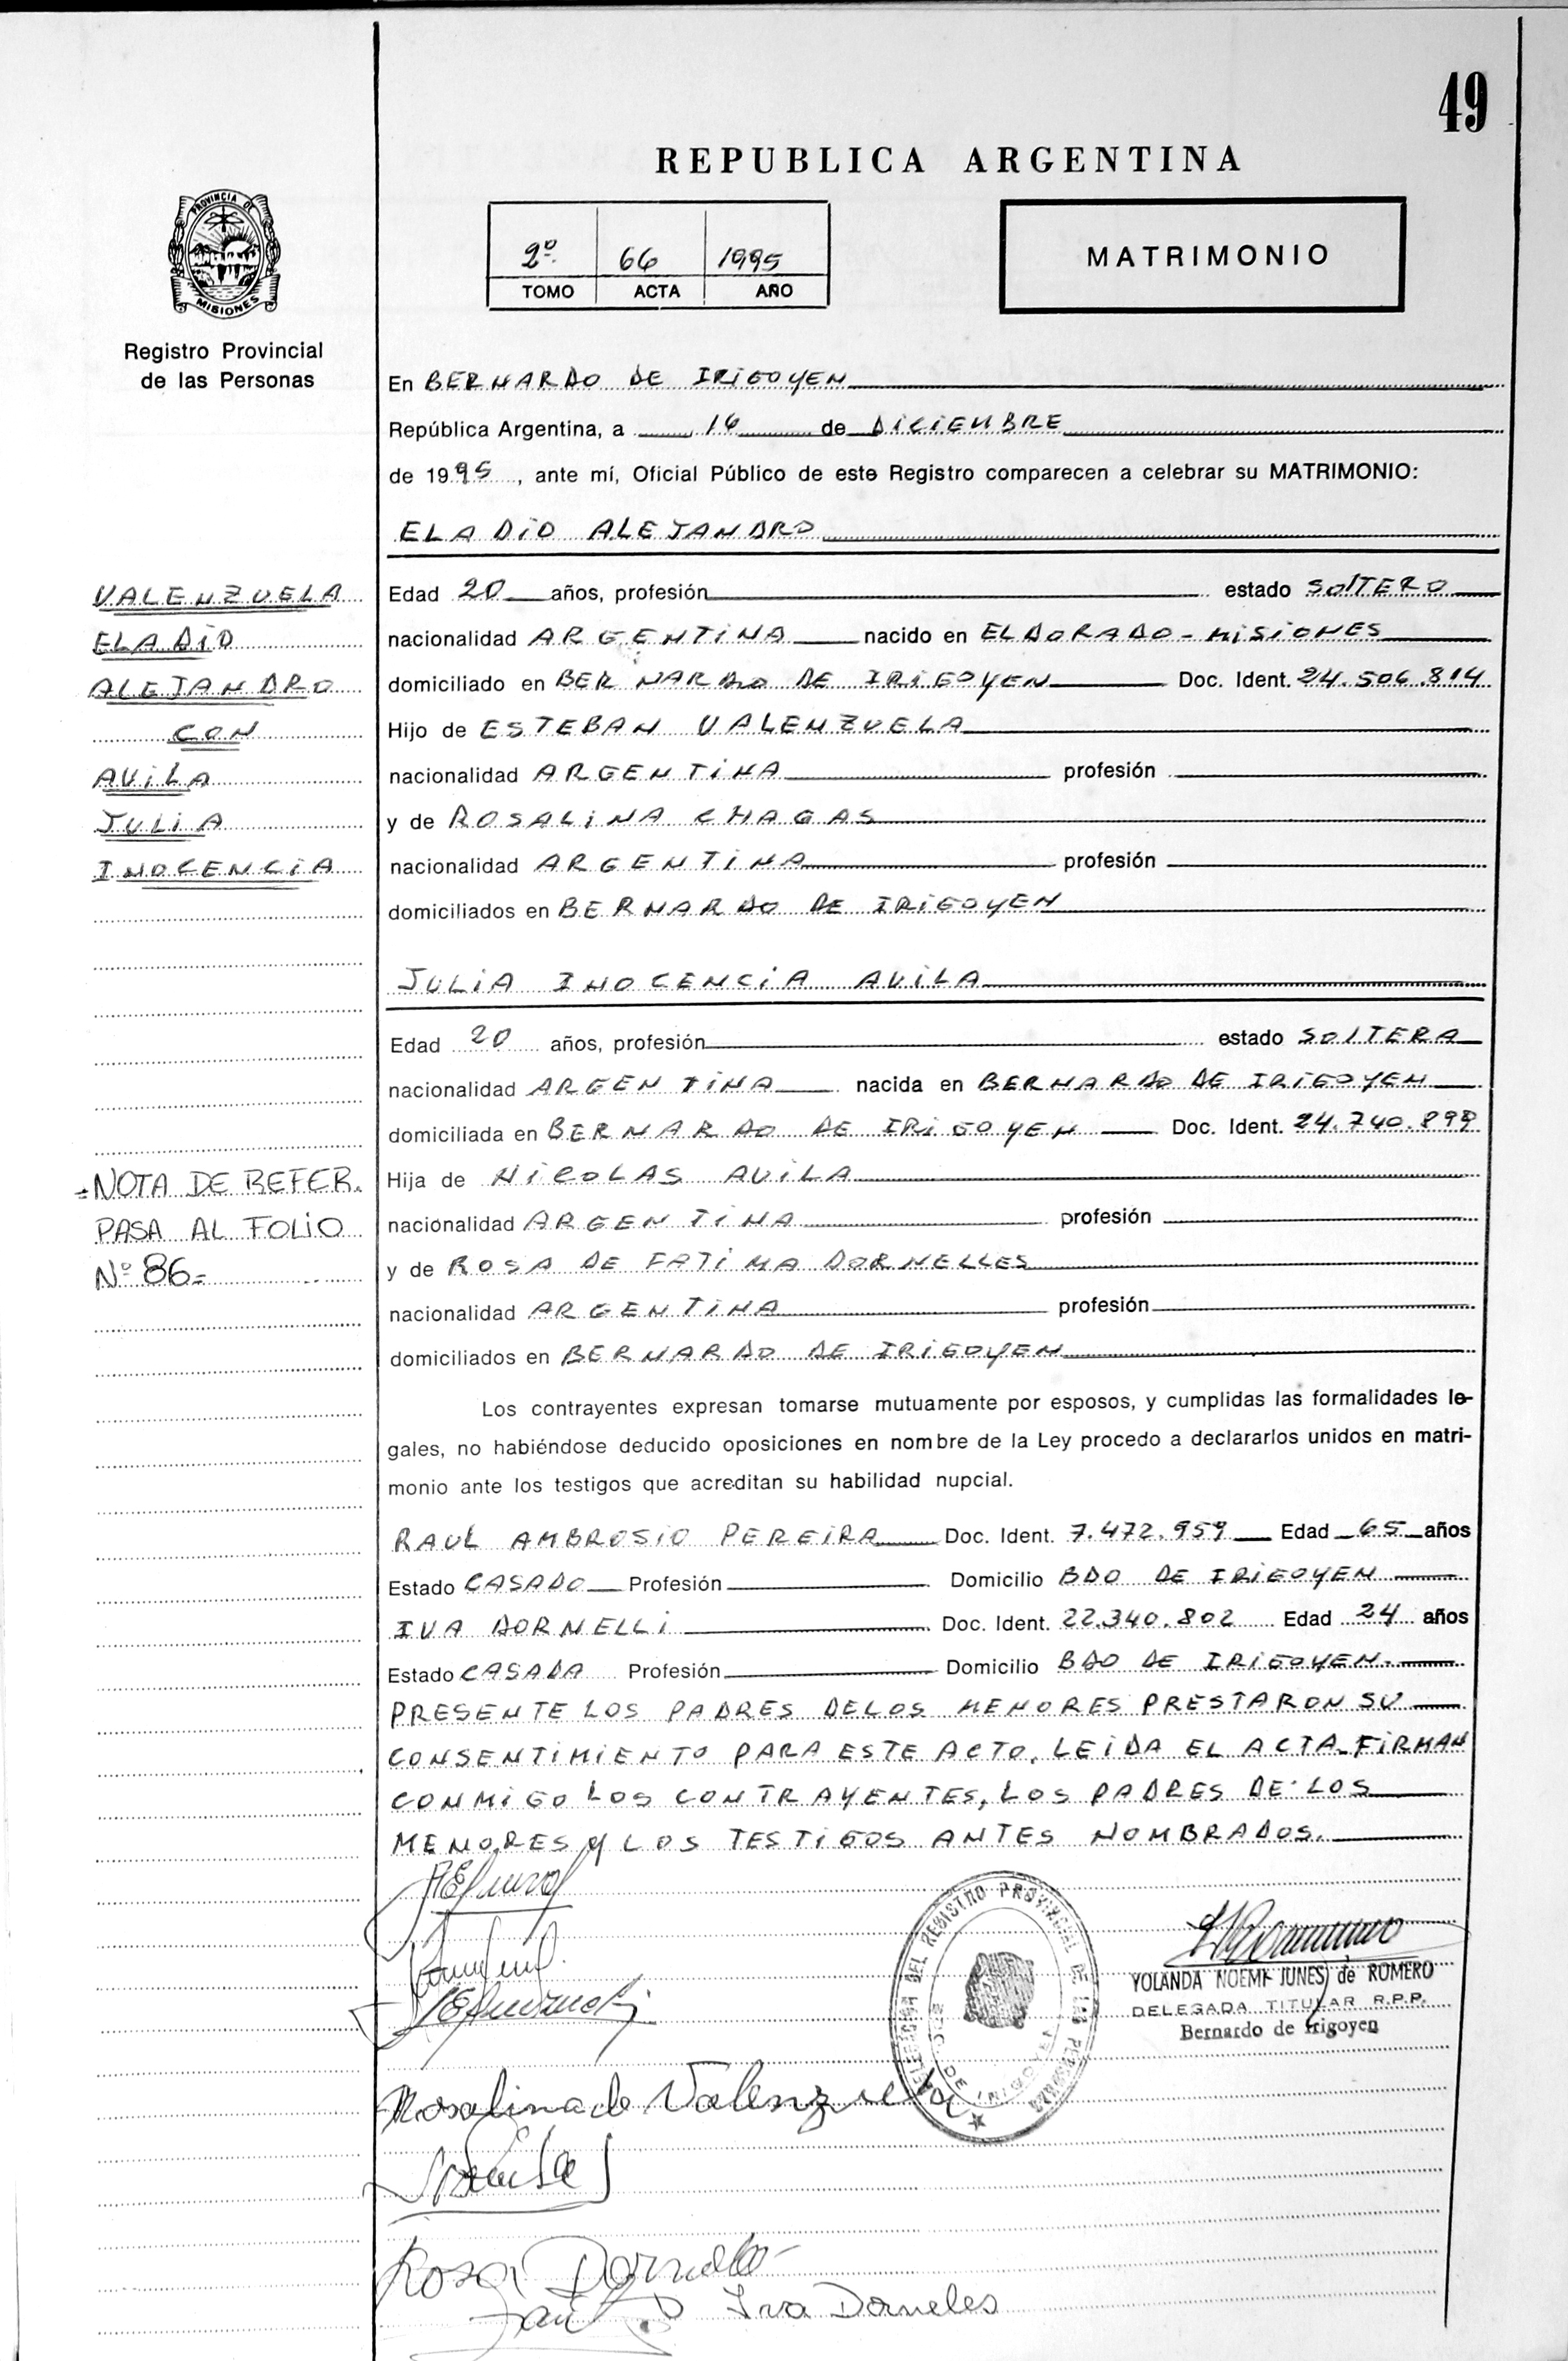 49
REPUBLICA ARGENTINA
PROVINCIA DE
MISIONES
Registro Provincial
de las Personas
2º 66 1995
TOMO ACTA AÑO
MATRIMONIO
En BERNARDO DE IRIGOYEN
República Argentina, a 16 de DICIEMBRE
de 1995, ante mí, Oficial Público de este Registro comparecen a celebrar su MATRIMONIO:
ELADIO ALEJANDRO
VALENZUELA
ELADIO
ALEJANDRO
CON
AVILA
JULIA
INOCENCIA
Edad 20 años, profesión estado SOLTERO
nacionalidad ARGENTINA nacido en ELDORADO - MISIONES
domiciliado en BERNARDO DE IRIGOYEN Doc. Ident. 24.506.814
Hijo de ESTEBAN VALENZUELA
nacionalidad ARGENTINA profesión
y de ROSALINA CHAGAS
nacionalidad ARGENTINA profesión
domiciliados en BERNARDO DE IRIGOYEN
JULIA INOCENCIA AVILA
Edad 20 años, profesión estado SOLTERA
nacionalidad ARGENTINA nacida en BERNARDO DE IRIGOYEN
domiciliada en BERNARDO DE IRIGOYEN Doc. Ident. 24.740.899
Hija de NICOLAS AVILA
nacionalidad ARGENTINA profesión
y de ROSA DE FATIMA DORNELLES
nacionalidad ARGENTINA profesión
domiciliados en BERNARDO DE IRIGOYEN
=NOTA DE REFER.
PASA AL FOLIO
Nº 86=
Los contrayentes expresan tomarse mutuamente por esposos, y cumplidas las formalidades le-
gales, no habiéndose deducido oposiciones en nombre de la Ley procedo a declararlos unidos en matri-
monio ante los testigos que acreditan su habilidad nupcial.
RAUL AMBROSIO PEREIRA Doc. Ident. 7.472.959 Edad 65 años
Estado CASADO Profesión Domicilio BDO DE IRIGOYEN
IVA DORNELLI Doc. Ident. 22.340.802 Edad 24 años
Estado CASADA Profesión Domicilio BDO DE IRIGOYEN.
PRESENTE LOS PADRES DELOS MENORES PRESTARON SU
CONSENTIMIENTO PARA ESTE ACTO. LEIDA EL ACTA FIRMAN
CONMIGO LOS CONTRAYENTES, LOS PADRES DE LOS
MENORES Y LOS TESTIGOS ANTES NOMBRADOS.
DELEGACION DEL REGISTRO PROVINCIAL DE LAS PERSONAS
BDO. DE IRIGOYEN
YOLANDA NOEMI JUNES de ROMERO
DELEGADA TITULAR R.P.P.
Bernardo de Irigoyen
Rosalina de Valenzuela
Rosa
Iva Dorneles